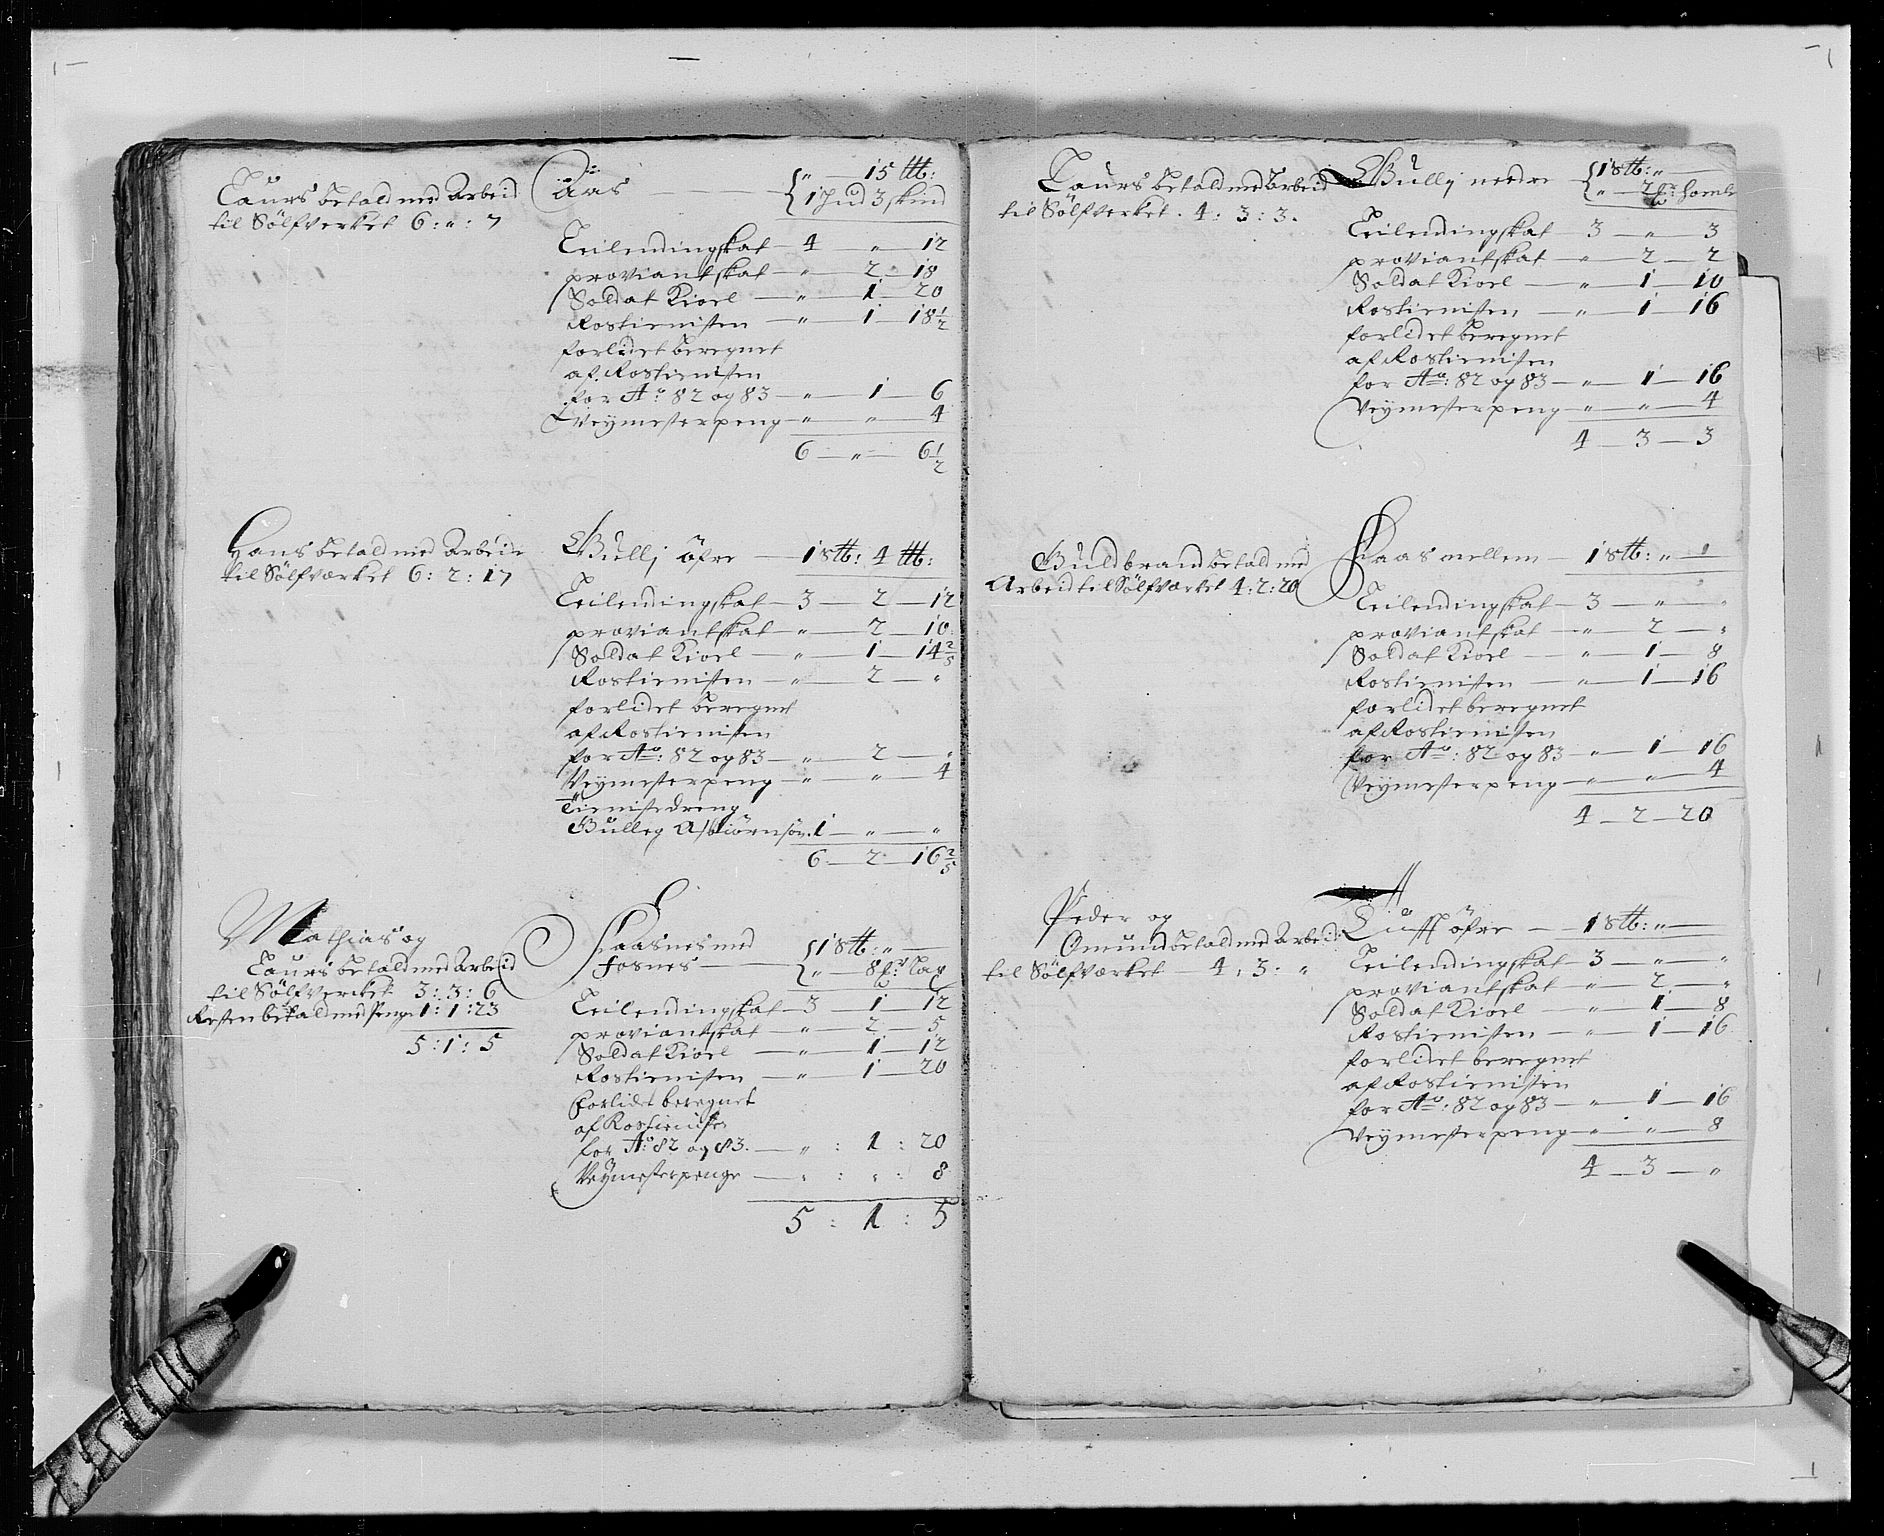 Laurs betald med Arbeid
til Sölfverket 6 : „ : 7
Aaas — { „ — 15 ℔:
{ 1 Jud 3 skind
Leilendingskat — 4 — „ — 12
proviantskat — „ — 2 — 18
Soldat Kioel — „ — 1 — 20
Rostienisten — „ — 1 — 18½
forlidet beregnet
af Rostienisten
for Aº: 82 og 83 — „ — 1 — 6
Veymesterpeng — „ — „ — 4
6 — „ — 6½
Hans betald med Arbeide
til Sölfværket 6 : 2 : 17
Bullj öfre — 1 S℔: 4 ℔:
Leilendingskat — 3 — 2 — 12
proviantskat — „ — 2 — 10
Soldat Kioel — „ — 1 — 14⅖
Rostienisten — „ — 2 — „
forlidet beregnet
af Rostienisten
for Aº: 82 og 83 — „ — 2 — „
Veymesterpeng — „ — „ — 4
Tienistedreng
Bulleg Asbiörnsön. 1 — „ — „
6 — 2 — 16⅖
Mathias og
Laurs betald med Arbeid
til Sölfvercket 3 : 3 : 6
Resten betald med Penge 1 : 1 : 23
5 : 1 : 5
Haasnes med { 1 S℔: „ —
Fosnes — { „ 8 Lax
Leilendingskat — 3 — 1 — 12
proviantskat — „ — 2 — 5
Soldat Kioel — „ — 1 — 12
Rostienisten — „ — 1 — 20
forlidet beregnet
af Rostienisten
for Aº 82 og 83. — „ : 1 : 20
Veymesterpenge — „ : „ : 8
5 : 1 : 5
Laurs betald med Arbeid
til Sölfverket . 4 : 3 : 3 .
Bullj nedre { 1 S℔: „ —
{ „ 2
Leilendingskat — 3 — „ — 3
proviantskat — „ — 2 — 2
Soldat Kioel — „ — 1 — 10
Rostienisten — „ — 1 — 16
forlidet beregnet
af Rostienisten
for Aº: 82 og 83 — „ — 1 — 16
Veymesterpeng — „ — „ — 4
4 — 3 — 3
Guldbrand betald med
Arbeid til Sölfværket 4 : 2 : 20
Haas mellem — 1 S℔: „ —
Leilendingskat — 3 — „ — „
proviantskat — „ — 2 — „
Soldat Kioel — „ — 1 — 8
Rostienisten — „ — 1 — 16
forlidet beregnet
af Rostienisten
for Aº: 82 og 83 — „ — 1 — 16
Veymesterpeng — „ — „ — 4
4 — 2 — 20
Peder og
Omund betald med Arbeid
til Sölfværket — 4 : 3 : „
Luff öfre — 1 S℔: „ —
Leilendingskat — 3 — „ — „
proviantskat — „ — 2 — „
Soldat Kioel — „ — 1 — 8
Rostienisten — „ — 1 — 16
forlidet beregnet
af Rostienisten
for Aº: 82 og 83 — „ — 1 — 16
Veymesterpeng — „ — „ — 8
4 — 3 — „